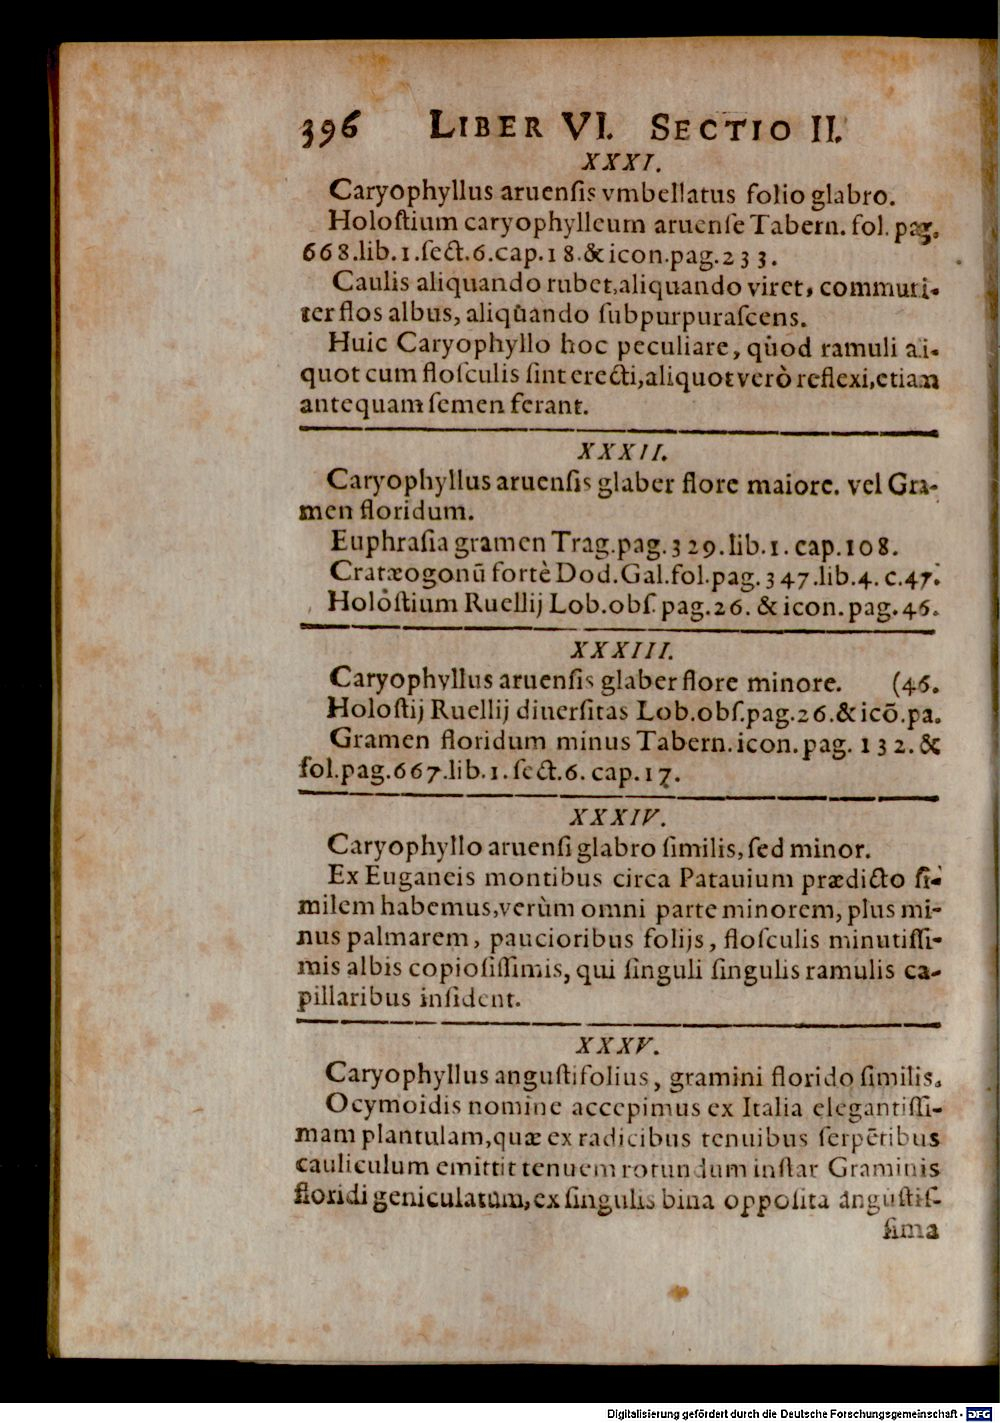 396 LIBER VI. SECTIO II.
XXXI.
Caryophyllus aruenſis vmbellatus folio glabro.
Holoſtium caryophylleum aruenſe Tabern. fol. pag.
668.lib.1.ſect.6.cap.18.& icon.pag.233.
Caulis aliquando rubet,aliquando viret, communi-
ter flos albus, aliquando ſubpurpuraſcens.
Huic Caryophyllo hoc peculiare, qùod ramuli ali-
quot cum floſculis ſint erecti,aliquot verò reflexi,etiam
antequam ſemen ferant.
XXXII.
Caryophyllus aruenſis glaber flore maiore. vel Gra-
men floridum.
Euphraſia gramen Trag.pag.329.lib.1.cap.108.
Cratæogonū fortè Dod.Gal.fol.pag.347.lib.4. c.47.
Holoſtium Ruellij Lob.obſ.pag.26. & icon.pag.46.
XXXIII.
Caryophyllus aruenſis glaber flore minore. (46.
Holoſtij Ruellij diuerſitas Lob.obſ.pag.26.& icō.pa.
Gramen floridum minus Tabern.icon.pag. 132.&
fol.pag.667.lib.1.ſect.6. cap.17.
XXXIV.
Caryophyllo aruenſi glabro ſimilis, ſed minor.
Ex Euganeis montibus circa Patauium prædicto ſi-
milem habemus,verùm omni parte minorem, plus mi-
nus palmarem, paucioribus folijs, floſculis minutiſſi-
mis albis copioſiſſimis, qui ſinguli ſingulis ramulis ca-
pillaribus inſident.
XXXV.
Caryophyllus anguſtifolius, gramini florido ſimilis.
Ocymoidis nomine accepimus ex Italia elegantiſſi-
mam plantulam,quæ ex radicibus tenuibus ſerpētibus
cauliculum emittit tenuem rotundum inſtar Graminis
floridi geniculatum, ex ſingulis bina oppoſita anguſtiſ-
ſima
Digitalisierung gefördert durch die Deutsche Forschungsgemeinschaft - DFG